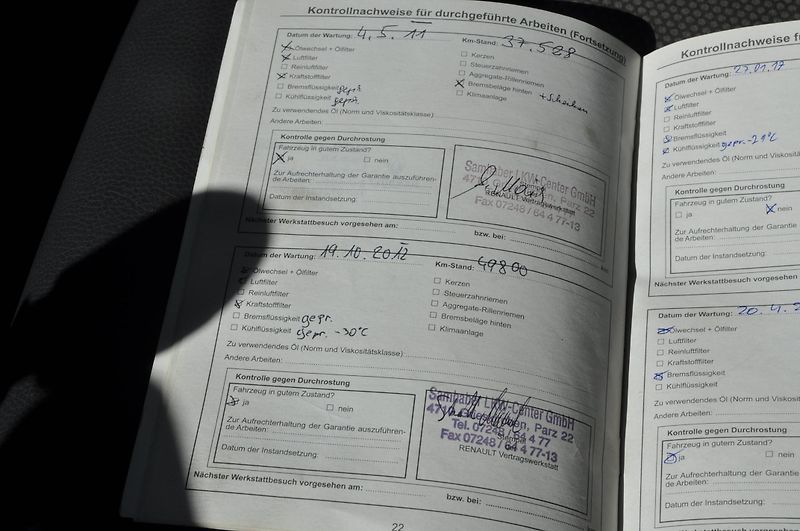 Kontrollnachweise für durchgeführte Arbeiten (Fortsetzung)
Datum der Wartung: 4.5.11 Km-Stand: 37.588
Ölwechsel + Ölfilter
Luftfilter
Reinluftfilter
Kraftstofffilter
Bremsflüssigkeit gepr.
Kühlflüssigkeit gepr.
Kerzen
Steuerzahnriemen
Aggregate-Rillenriemen
Bremsbeläge hinten + Scheiben
Klimaanlage
Zu verwendendes Öl (Norm und Viskositätsklasse)
Andere Arbeiten:
Kontrolle gegen Durchrostung
Fahrzeug in gutem Zustand?
ja nein
Zur Aufrechterhaltung der Garantie auszuführen-
de Arbeiten:
Datum der Instandsetzung:
Samhaber LKW-Center GmbH
Parz 22
Fax 07248 / 64 4 77-13
RENAULT Vertragswerkstatt
Nächster Werkstattbesuch vorgesehen am: bzw. bei:
Datum der Wartung: 19.10.2012 Km-Stand: 49800
Ölwechsel + Ölfilter
Luftfilter
Reinluftfilter
Kraftstofffilter
Bremsflüssigkeit gepr.
Kühlflüssigkeit gepr. -30°C
Kerzen
Steuerzahnriemen
Aggregate-Rillenriemen
Bremsbeläge hinten
Klimaanlage
Zu verwendendes Öl (Norm und Viskositätsklasse):
Andere Arbeiten:
Kontrolle gegen Durchrostung
Fahrzeug in gutem Zustand?
ja nein
Zur Aufrechterhaltung der Garantie auszuführen-
de Arbeiten:
Datum der Instandsetzung:
Samhaber LKW-Center GmbH
Parz 22
Tel. 07248 / 64 4 77
Fax 07248 / 64 4 77-13
RENAULT Vertragswerkstatt
Nächster Werkstattbesuch vorgesehen am: bzw. bei:
22
Kontrollnachweise fü
Datum der Wartung: 27.01.17
Ölwechsel + Ölfilter
Luftfilter
Reinluftfilter
Kraftstofffilter
Bremsflüssigkeit
Kühlflüssigkeit gepr. -29°C
Zu verwendendes Öl (Norm und Viskositäts
Andere Arbeiten:
Kontrolle gegen Durchrostung
Fahrzeug in gutem Zustand?
ja nein
Zur Aufrechterhaltung der Garantie aus
de Arbeiten:
Datum der Instandsetzung:
Nächster Werkstattbesuch vorgesehen
Datum der Wartung: 20.4.2
Ölwechsel + Ölfilter
Luftfilter
Reinluftfilter
Kraftstofffilter
Bremsflüssigkeit
Kühlflüssigkeit
Zu verwendendes Öl (Norm und Viskosität
Andere Arbeiten:
Kontrolle gegen Durchrostung
Fahrzeug in gutem Zustand?
ja nein
Zur Aufrechterhaltung der Garantie a
de Arbeiten:
Datum der Instandsetzung: